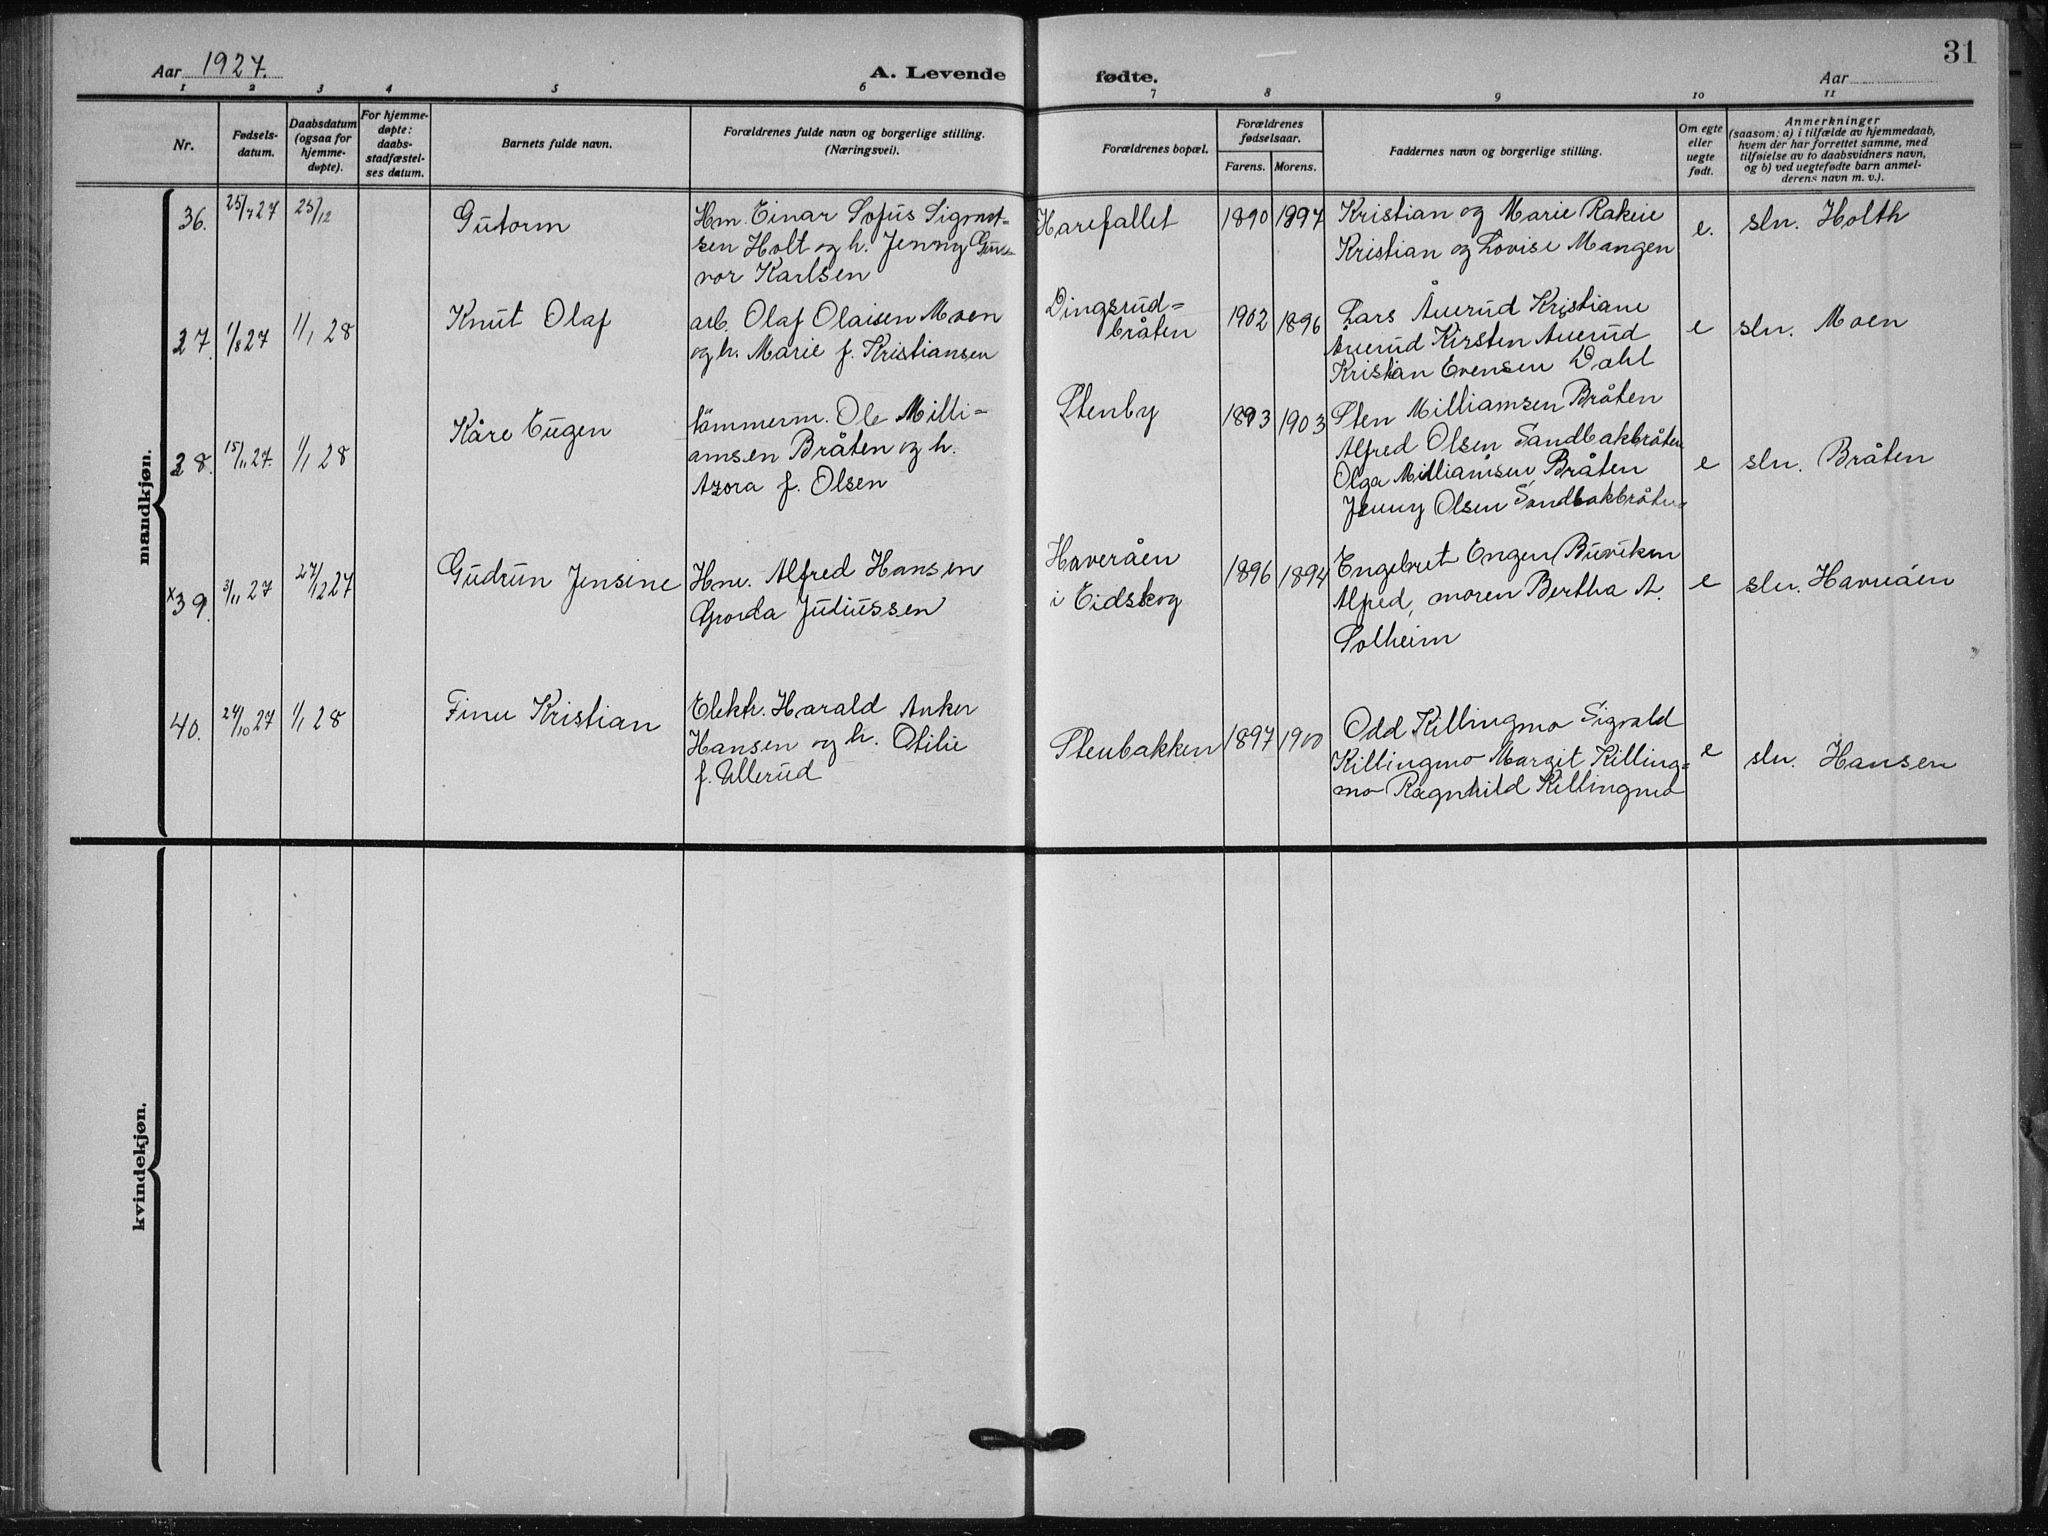 Aar 1927.
A. Levende fødte.
Aar
31
1 2 3 4 5 6 7 8 9 10 11
Nr.
Fødsels-
datum.
Daabsdatum
(ogsaa for
hjemme-
døpte).
For hjemme-
døpte:
daabs-
stadfæstel-
ses datum.
Barnets fulde navn.
Forældrenes fulde navn og borgerlige stilling.
(Næringsvei).
Forældrenes bopæl.
Forældrenes
fødselsaar.
Farens. Morens.
Faddernes navn og borgerlige stilling.
Om egte
eller
uegte
født.
Anmerkninger
(saasom: a) i tilfælde av hjemmedaab,
hvem der har forrettet samme, med
tilføielse av to daabsvidners navn,
og b) ved uegtefødte barn anmel-
derens navn m. v.).
mandkjøn.
36.
25/7 27
25/12
Gutorm
Hm. Einar Sofus Sigmot-
sen Holt og h. Jenny Gun-
vor Karlsen
Harefallet
1890
1897
Kristian og Marie Rakeie
Kristian og Lovise Mangen
e.
sln. Holth
37.
1/8 27
1/1 28
Knut Olaf
arb. Olaf Olaisen Moen
og h. Marie f. Kristiansen
Dingsrud=
bråten
1902
1896
Lars Åuerud Kristiane
Åuerud Kirsten Auerud
Kristian Evensen Dahl
e
sln. Moen
38.
15/11 27.
1/1 28
Kåre Eugen
tömmerm. Ole Milli=
amsen Bråten og h.
Azora f. Olsen
Stenby
1893
1903
Sten Milliamsen Bråten
Alfred Olsen Sandbakbråten
Olga Milliamsen Bråten
Jenny Olsen Sandbakbråten
e
sln. Bråten
x39.
3/11 27
27/12 27
Gudrun Jensine
Hne. Alfred Hansen
Juliussen
Haveråen
i Eidskog
1896
1894
Engebret Engen, Buviken
Alfred, moren Bertha A.
Solheim
e
sln. Haveråen
40.
24/10 27
1/1 28
Finn Kristian
Elektr. Harald Anker
Hansen og h. Otilie
f. Ullerud
Stenbakken
1897
1900
Odd Killingmo Sigvald
Killingmo Margit Killing=
mo Ragnhild Killingmo
e
sln. Hansen
kvindekjøn.